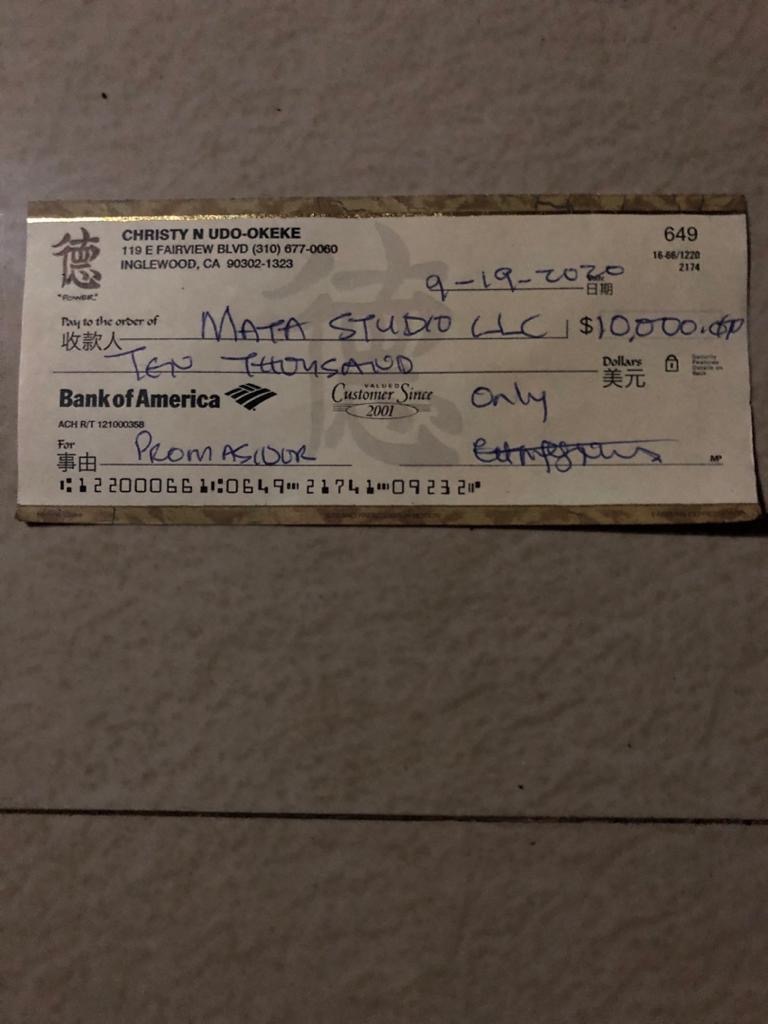 德
"POWER"
CHRISTY N UDO-OKEKE
119 E FAIRVIEW BLVD (310) 677-0060
INGLEWOOD, CA 90302-1323
649
16-66/1220
2174
9-19-2020
Date
日期
Pay to the order of
收款人 MATA STUDIO LLC $10,000.00
TEN THOUSAND
Dollars
美元
Security
Features
Details on
Back
Bank of America
VALUED
Customer Since
2001
Only
ACH R/T 121000358
For
事由 PROMASIDOR
MP
⑆122000661⑆0649⑈21741⑈09232⑈